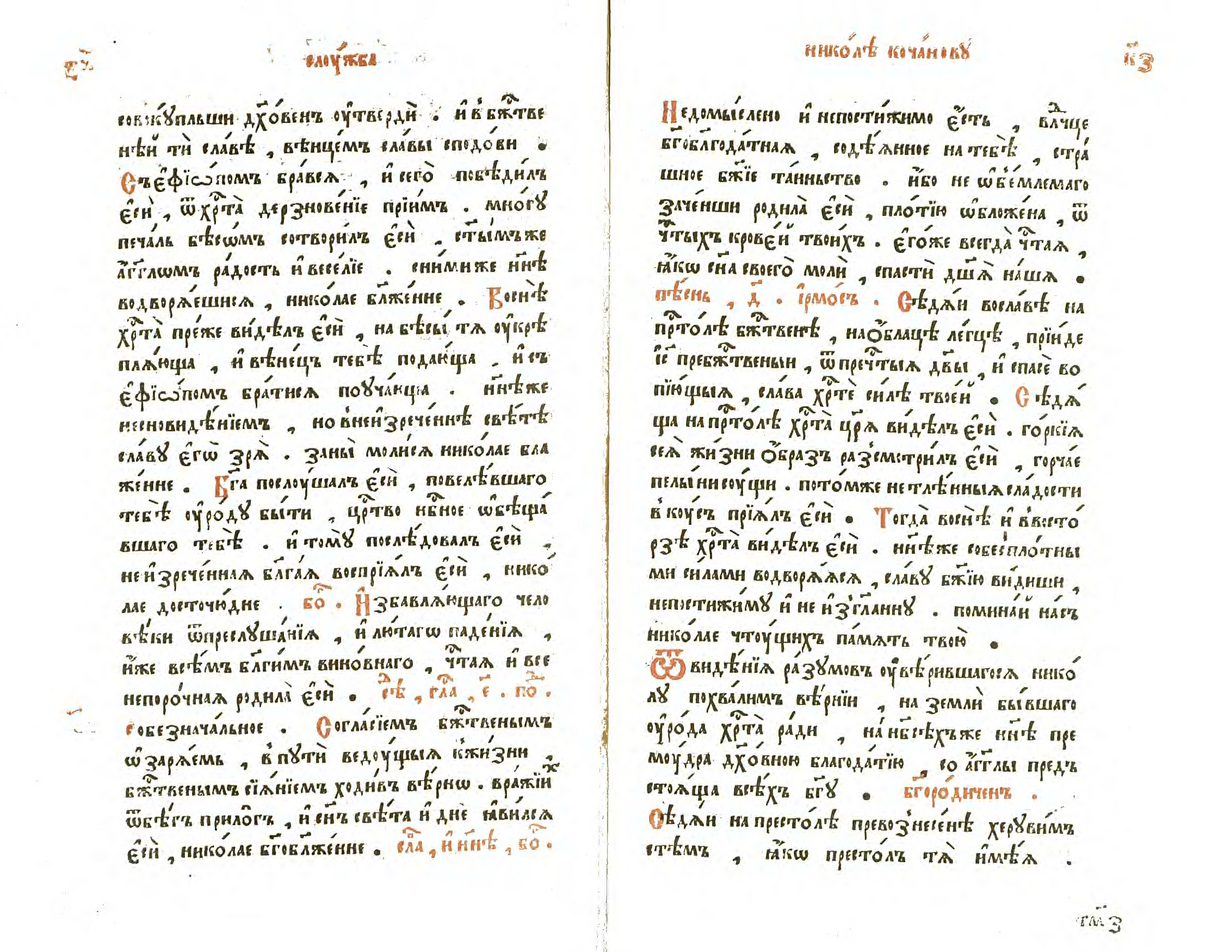 слоу́жба
совокꙋ́пльши дх҃о́венъ оу҆твердѝ . и҆ в бж҃тве
нѣ́й тѝ сла́вѣ , вѣнце́мъ сла́вы сподо́ви .
Съ є҆фїѡ́помъ бра́вся , и҆ сего̀ побѣди́лъ
є҆сѝ , ѿ хрⷭ҇та̀ дерзнове́нїе прїи́мъ . мно́гꙋ
печа́ль бѣсѡ́мъ сотвори́лъ є҆сѝ , ст҃ы́мъже
а҆́гг҃лѡмъ ра́дость и҆ весе́лїе . сни́миже нн҃ѣ
водворѧ́ешисѧ , нико́лае бл҃же́нне . Во снѣ̀
хрⷭ҇та̀ пре́же ви́дѣлъ є҆сѝ , на бѣсы̀ тѧ оу҆крѣ
плѧ́юща , и҆ вѣне́цъ тебѣ̀ подаю́ща . и҆ съ
є҆фїѡ́помъ бра́тисѧ поуча́юща . нн҃ѣже
несновидѣ́нїемъ , но в неизрече́ннѣ свѣ́тѣ
сла́вꙋ є҆гѡ̀ зрѧ̀ . за ны̀ моли́сѧ нико́лае бла
же́нне . Бг҃а послоу́шалъ є҆сѝ , повелѣ́вшаго
тебѣ̀ оу҆ро́дꙋ бы́ти , црⷭ҇тво нбⷭ҇ное ѡ҆бѣща́
вшаго тебѣ̀ . и҆ томꙋ̀ послѣ́довалъ є҆сѝ ,
неизрече́ннаѧ бл҃га́ѧ воспрїѧ́лъ є҆сѝ , нико́
лае досточю́дне . бо҃ . И҆збавлѧ́ющаго чело
вѣ́ки ѿ преслꙋша́нїѧ , и҆ лю́тагѡ паде́нїѧ ,
и҆́же всѣ́мъ бл҃ги́мъ вино́внаго , чⷭ҇таѧ и҆ все
непоро́чнаѧ родила̀ є҆сѝ . сѣⷣ , гла́ , є҃ . поⷣ .
собезнача́льное . Согла́сїемъ бжⷭ҇твенымъ
ѡ҆зарѧ́емь , в пꙋтѝ ведоу́щыѧ к жи́зни ,
бжⷭ҇твенымъ сїѧ́нїемъ ходи́въ вѣ́рнѡ . вра́жїихъ
ѿбѣ́гъ прило́гъ , и҆ сн҃ъ свѣ́та и҆ днѐ ꙗ҆ви́лсѧ
є҆сѝ , нико́лае бг҃обл҃же́нне . сла́ , и҆ нн҃ѣ , бо҃ .
нико́лѣ коча́новꙋ
к҃з
Недомы́слено и҆ непости́жимо є҆́сть , влⷣчце
бг҃облг҃ода́тнаѧ , содѣ́ѧнное на тебѣ̀ , стра́
шное бж҃їе та́иньство . и҆́бо не ѡ҆б̾е́млемаго
заче́нши родила̀ є҆сѝ , пло́тїю ѡ҆бложе́на , ѿ
чⷭ҇тыхъ крове́й твои́хъ . є҆го́же всегда̀ чⷭ҇таѧ ,
ꙗ҆́кѡ сн҃а своего̀ молѝ , спастѝ дш҃ѧ̀ на́шѧ .
пѣ́снь , д҃ . і҆рмо́съ . Сѣдѧ́и во сла́вѣ на
прⷭ҇то́лѣ бжⷭ҇твенѣ , на о҆́блацѣ ле́гцѣ , прїи́де
і҆с҃ пребжⷭ҇твеныи , ѿ пречⷭ҇тыѧ дв҃ы , и҆ спасѐ во
пїю́щыѧ , сла́ва хрⷭ҇тѐ си́лѣ твое́й . Сѣдѧ́
ща на прⷭ҇то́лѣ хрⷭ҇та̀ цр҃ѧ̀ ви́дѣлъ є҆сѝ . го́ркїѧ
сеѧ̀ жи́зни о҆́бразъ разсмотри́лъ є҆сѝ , горча́е
пелы́ни соу́щи . пото́мже нетлѣ́нныѧ сла́дости
в коу́съ прїѧ́лъ є҆сѝ . Тогда̀ во снѣ̀ и҆ в восто́
рзѣ хрⷭ҇та̀ ви́дѣлъ є҆сѝ . нн҃ѣже со бесплотны
ми си́лами водворѧ́ѧсѧ , сла́вꙋ бж҃їю ви́диши ,
непости́жимꙋ и҆ не и҆згла́ннꙋ . помина́й на́съ
нико́лае чтоу́щихъ па́мѧть твою̀ .
Ѿ видѣ́нїѧ ра́зумовъ оу҆вѣ́рившагосѧ нико́
лꙋ похва́лимъ вѣ́рнїи , на землѝ бы́вшаго
оу҆ро́да хрⷭ҇та̀ ра́ди , на нб҃сѣ́хъже нн҃ѣ пре
моу́дра дх҃о́вною благода́тїю , со а҆́гг҃лы пред̾
стоѧ́ща всѣ́хъ бг҃ꙋ . бг҃оро́диченъ .
Сѣдѧ́и на престо́лѣ превознесе́нѣ херꙋви́мъ
стѣмъ , ꙗ҆́кѡ престо́лъ тѧ̀ и҆мѣ́ѧ .